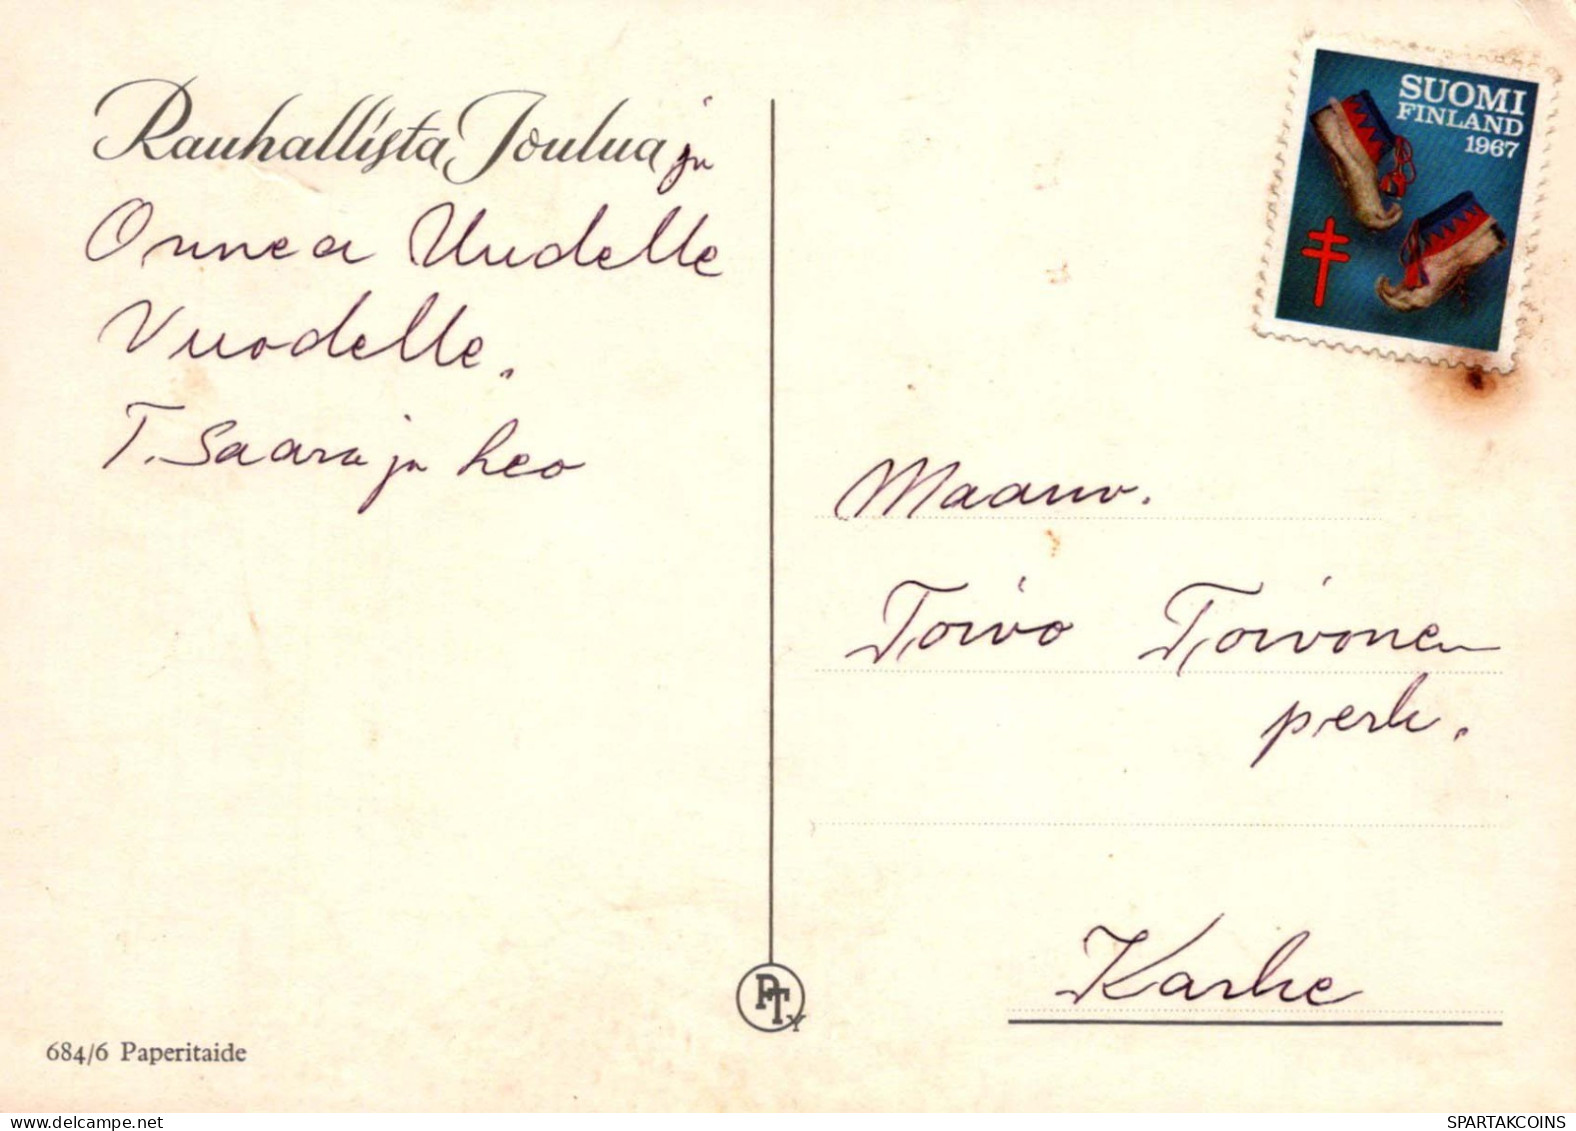 Rauhallista Joulua ja
Onnea Uudelle
Vuodelle.
T. Saara ja Leo
684/6 Paperitaide
PTY
SUOMI
FINLAND
1967
Toivo Toivonen
perh.
Karhe
SPARTAKCOINS